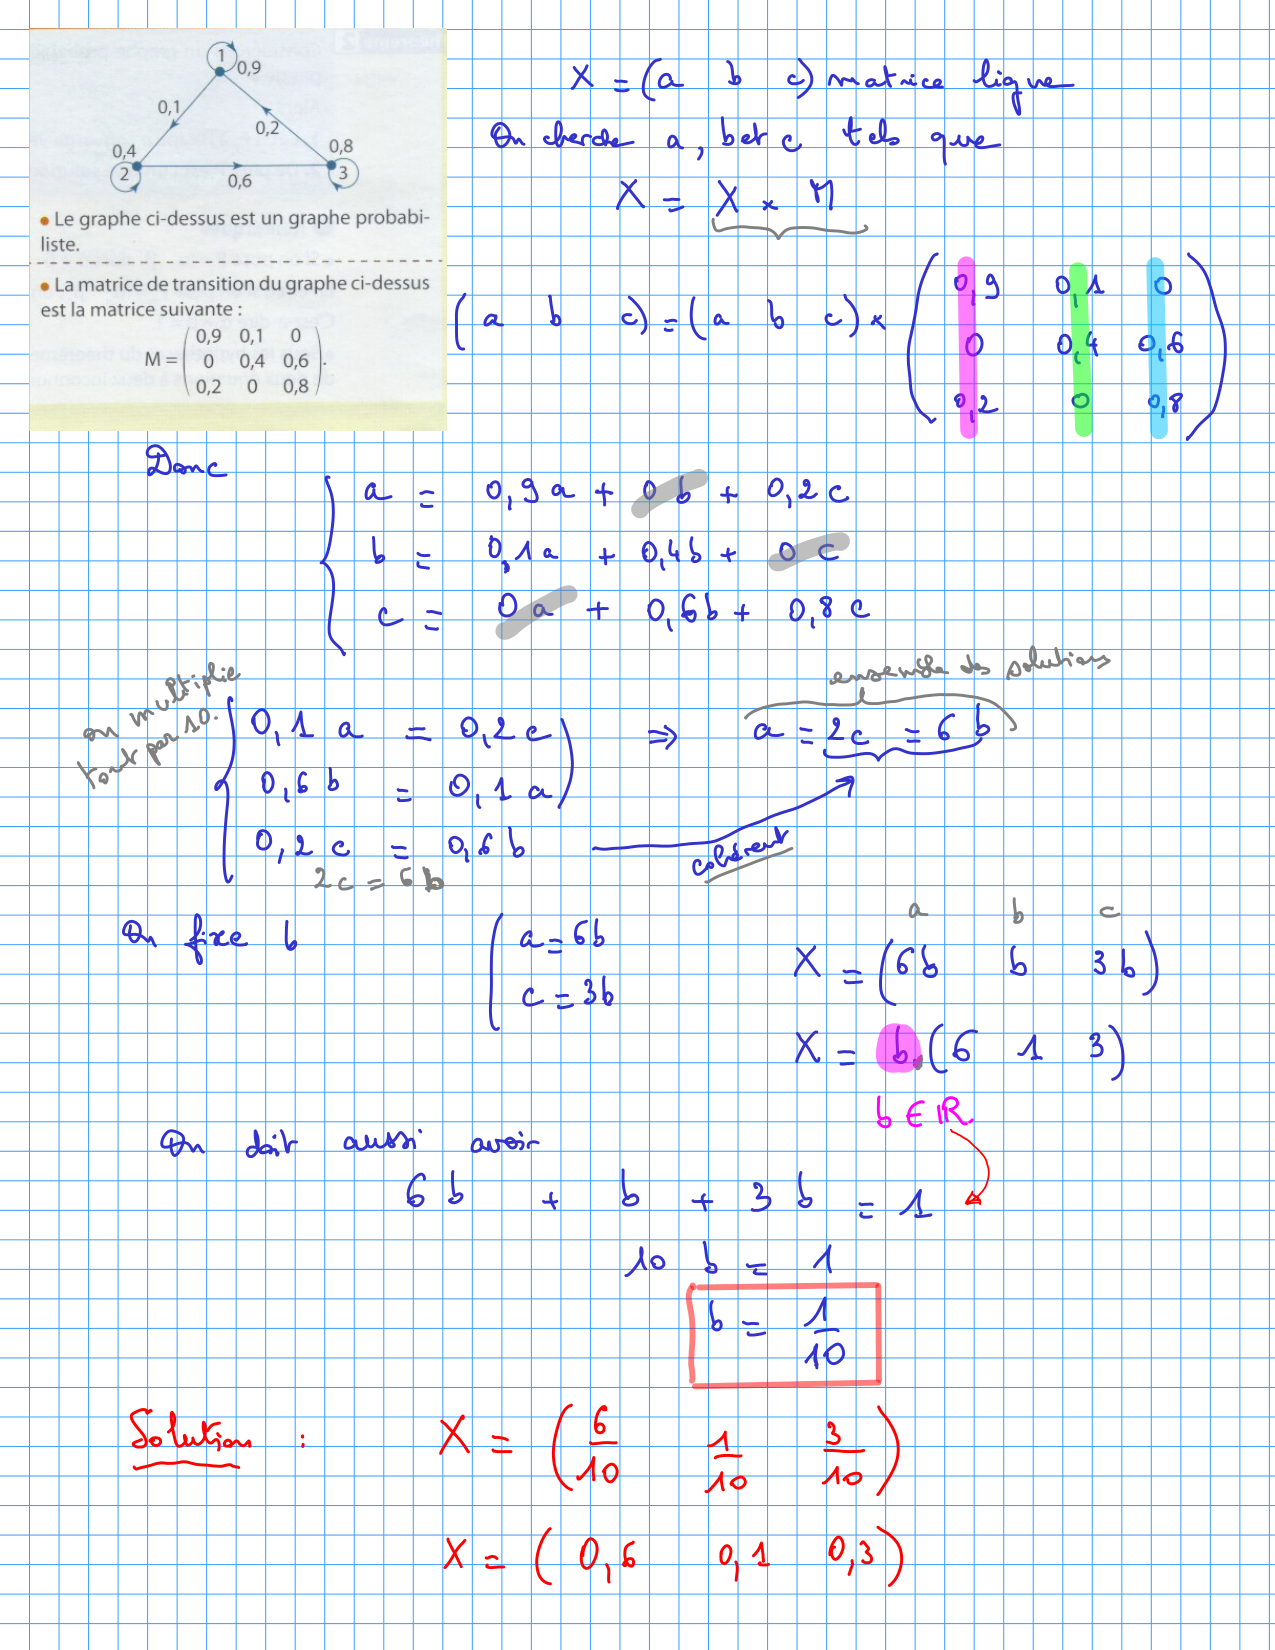 1
0,9
0,1
0,2
0,4
0,8
2
3
0,6
• Le graphe ci-dessus est un graphe probabi-
liste.
• La matrice de transition du graphe ci-dessus
est la matrice suivante :
M = ( 0,9 0,1 0
0 0,4 0,6
0,2 0 0,8 ).
X = (a b c) matrice ligne
On cherche a, b et c tels que
X = X × M
(a b c) = (a b c) × ( 0,9 0,1 0
0 0,4 0,6
0,2 0 0,8 )
Donc
a = 0,9 a + 0 b + 0,2 c
b = 0,1 a + 0,4 b + 0 c
c = 0 a + 0,6 b + 0,8 c
on multiplie
tout par 10.
ensemble des solutions
0,1 a = 0,2 c ⇒ a = 2c = 6 b
0,6 b = 0,1 a
0,2 c = 0,6 b
cohérent
2c = 6 b
On fixe b
a = 6b
c = 3b
a b c
X = (6b b 3b)
X = b.(6 1 3)
b ∈ IR
On doit aussi avoir
6 b + b + 3 b = 1
10 b = 1
b = 1/10
Solution : X = (6/10 1/10 3/10)
X = (0,6 0,1 0,3)